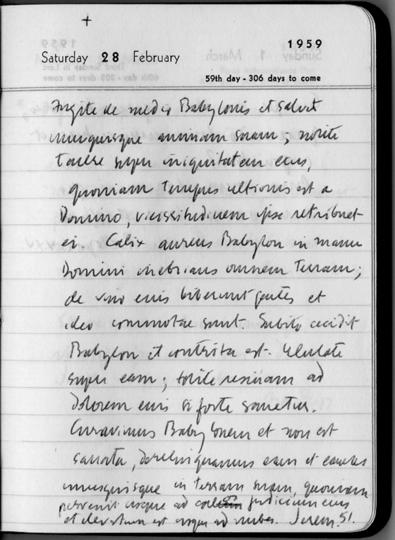 +
1959
Saturday 28 February
59th day - 306 days to come
Fugite de medio Babylonis et salvet
unusquisque animam suam; nolite
tacere super iniquitatem eius,
quoniam tempus ultionis est a
Domino, vicissitudinem ipse retribuet
ei. Calix aureus Babylon in manu
Domini inebrians omnem terram;
de vino eius biberunt gentes et
ideo commotae sunt. Subito cecidit
Babylon et contrita est. Ululate
super eam; tollite resinam ad
dolorem eius si forte sanetur.
Curavimus Babylonem et non est
sanata, derelinquamus eam et eamus
unusquisque in terram suam, quoniam
pervenit usque ad judicium eius
et elevatum est usque ad nubes. Jerem. 51.